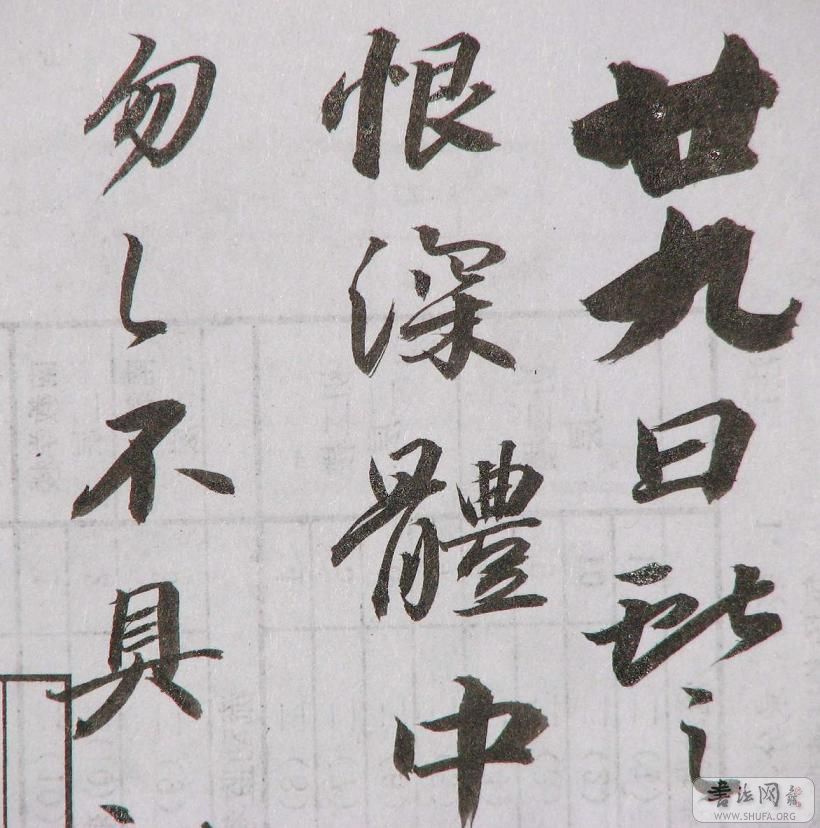 廿九日獻之
恨深體中
勿〻不具
書法网
WWW.SHUFA.ORG